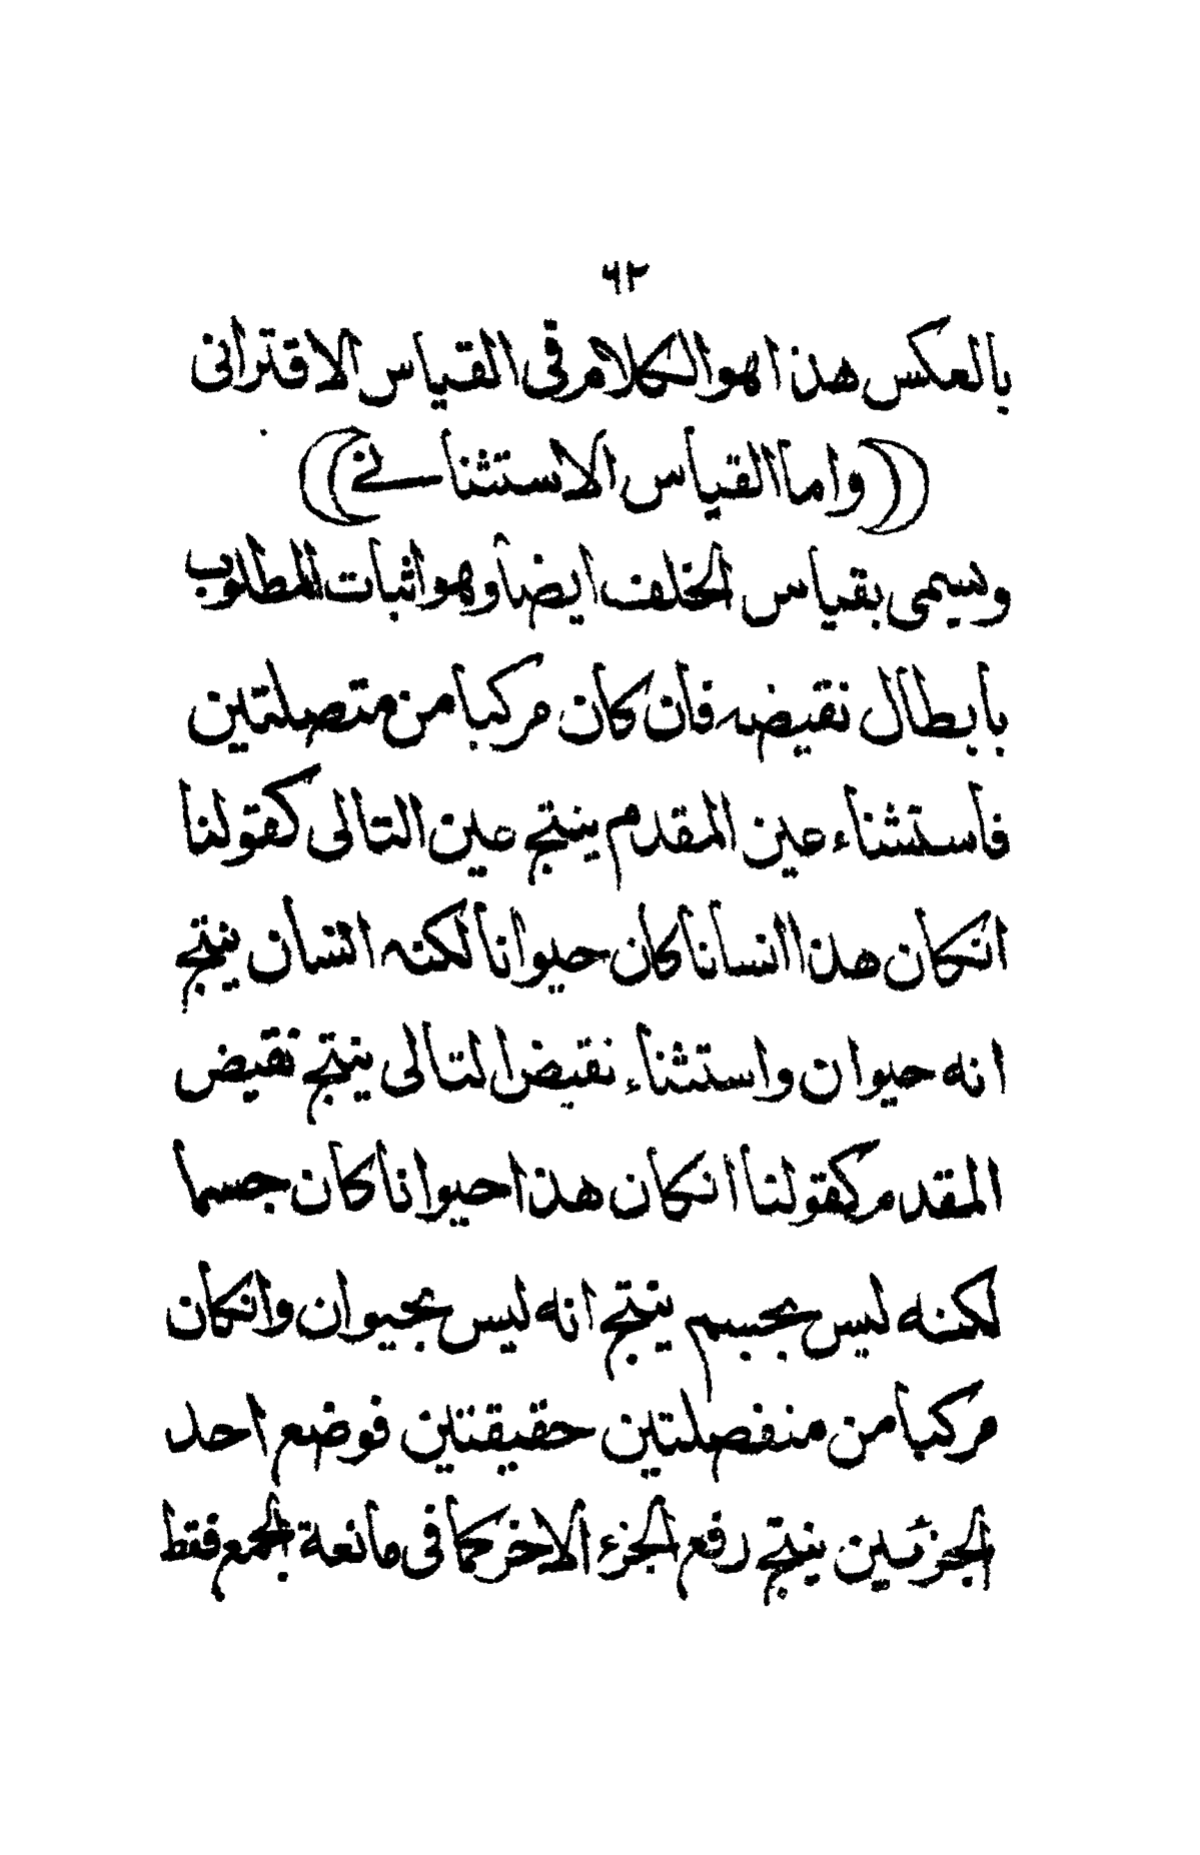 ٦٢
بالعكس هذا هو الكلام فى القياس الاقترانى
((واما القياس الاستثنائى))
ويسمى بقياس الخلف ايضا وهو اثبات المطلوب
بابطال نقيضه فان كان مركبا من متصلتين
فاستثناء عين المقدم ينتج عين التالى كقولنا
انكان هذا انسانا كان حيوانا لكنه انسان ينتج
انه حيوان واستثناء نقيض التالى ينتج نقيض
المقدم كقولنا انكان هذا حيوانا كان جسما
لكنه ليس بجسم ينتج انه ليس بحيوان وانكان
مركبا من منفصلتين حقيقتين فوضع احد
الجزئين ينتج رفع الجزء الاخر كما فى مانعة الجمع فقط